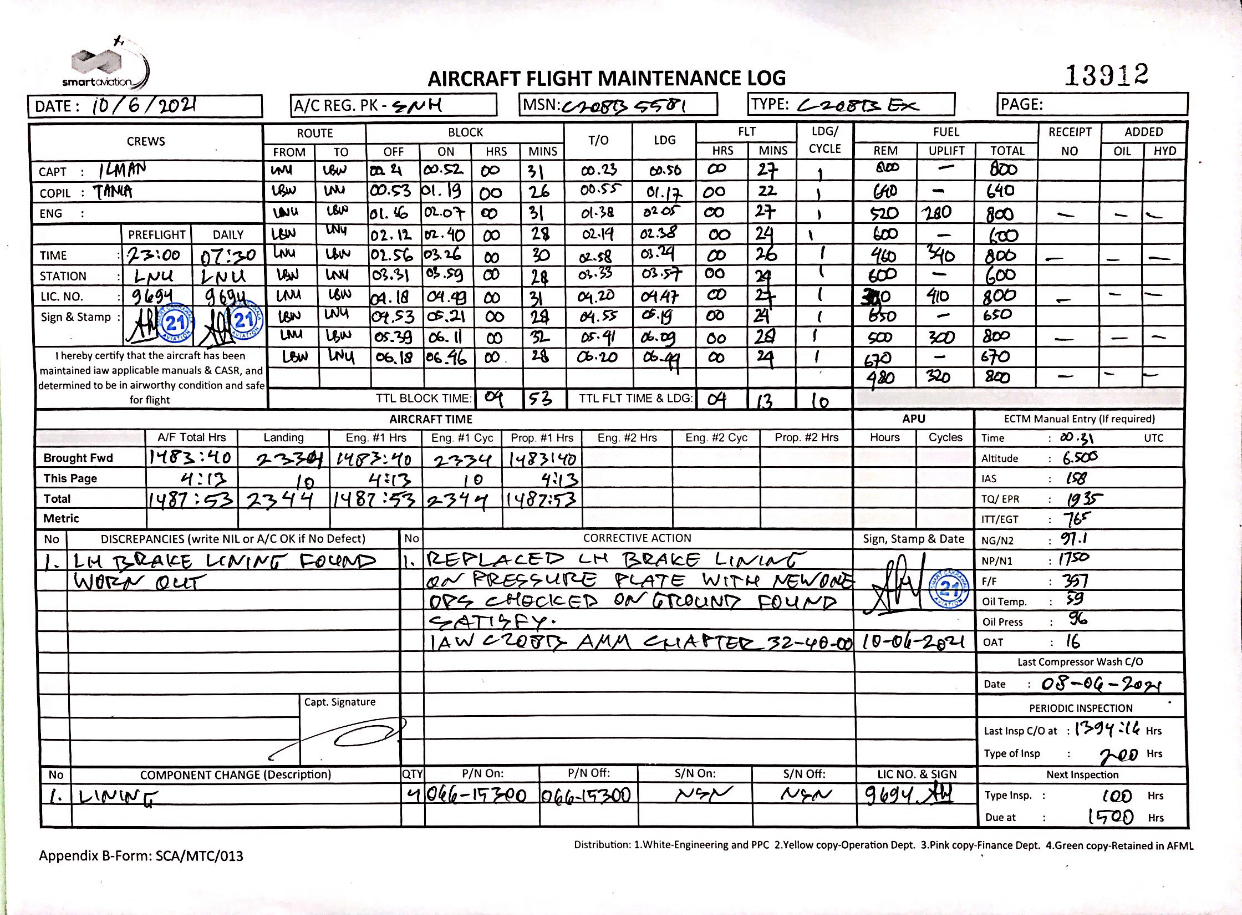 smartaviation
AIRCRAFT FLIGHT MAINTENANCE LOG
13912
DATE : 10/6/2021 A/C REG. PK - SNH MSN: C208B 5581 TYPE: C208B EX PAGE:
CREWS ROUTE BLOCK T/O LDG FLT LDG/ CYCLE FUEL RECEIPT NO ADDED
FROM TO OFF ON HRS MINS HRS MINS REM UPLIFT TOTAL OIL HYD
CAPT : ILMAN LNU LBW 00.21 00.52 00 31 00.23 00.50 00 27 1 800 – 800
COPIL : TANIA LBW LNU 00.53 01.19 00 26 00.55 01.17 00 22 1 640 – 640
ENG : LNU LBW 01.36 02.07 00 31 01.38 02.05 00 27 1 520 280 800 – – –
PREFLIGHT DAILY LBW LNU 02.12 02.40 00 28 02.14 02.38 00 24 1 600 – 600
TIME : 23:00 07:30 LNU LBW 02.56 03.26 00 30 02.58 03.24 00 26 1 460 340 800 – – –
STATION : LNU LNU LBW LNU 03.31 03.59 00 28 03.33 03.57 00 24 1 600 – 600
LIC. NO. : 9694 9694 LNU LBW 04.18 04.49 00 31 04.20 04.47 00 27 1 410 800 – – –
Sign & Stamp : 21 21 LBW LNU 04.53 05.21 00 28 04.55 05.19 00 24 1 650 – 650
LNU LBW 05.39 06.11 00 32 05.41 06.09 00 28 1 500 300 800 – – –
LBW LNU 06.18 06.46 00 28 06.20 06.44 00 24 1 670 – 670
480 320 800 – – –
I hereby certify that the aircraft has been
maintained iaw applicable manuals & CASR, and
determined to be in airworthy condition and safe
for flight
TTL BLOCK TIME: 04 53 TTL FLT TIME & LDG: 04 13 10
AIRCRAFT TIME APU ECTM Manual Entry (If required)
A/F Total Hrs Landing Eng. #1 Hrs Eng. #1 Cyc Prop. #1 Hrs Eng. #2 Hrs Eng. #2 Cyc Prop. #2 Hrs Hours Cycles Time : 00.31 UTC
Brought Fwd 1483:40 2334 1483:40 2334 1483:40 Altitude : 6.500
This Page 4:13 10 4:13 10 4:13 IAS : 158
Total 1487:53 2344 1487:53 2344 1487:53 TQ/ EPR : 1935
Metric ITT/EGT : 765
No DISCREPANCIES (write NIL or A/C OK if No Defect) No CORRECTIVE ACTION Sign, Stamp & Date NG/N2 : 97.1
1. LH BRAKE LINING FOUND 1. REPLACED LH BRAKE LINING NP/N1 : 1750
WORN OUT ON PRESSURE PLATE WITH NEW ONE 21 F/F : 397
OPS CHOCKED ON GROUND FOUND Oil Temp. : 59
SATISFY. Oil Press : 96
IAW C208B AMM CHAPTER 32-40-00 10-06-2021 OAT : 16
Last Compressor Wash C/O
Date : 08-06-2021
Capt. Signature PERIODIC INSPECTION
Last Insp C/O at : 1394:16 Hrs
Type of Insp : 200 Hrs
No COMPONENT CHANGE (Description) QTY P/N On: P/N Off: S/N On: S/N Off: LIC NO. & SIGN Next Inspection
1. LINING 4 066-15300 066-15300 NSN NSN 9694 Type Insp. : 100 Hrs
Due at : 1500 Hrs
Distribution: 1.White-Engineering and PPC 2.Yellow copy-Operation Dept. 3.Pink copy-Finance Dept. 4.Green copy-Retained in AFML
Appendix B-Form: SCA/MTC/013